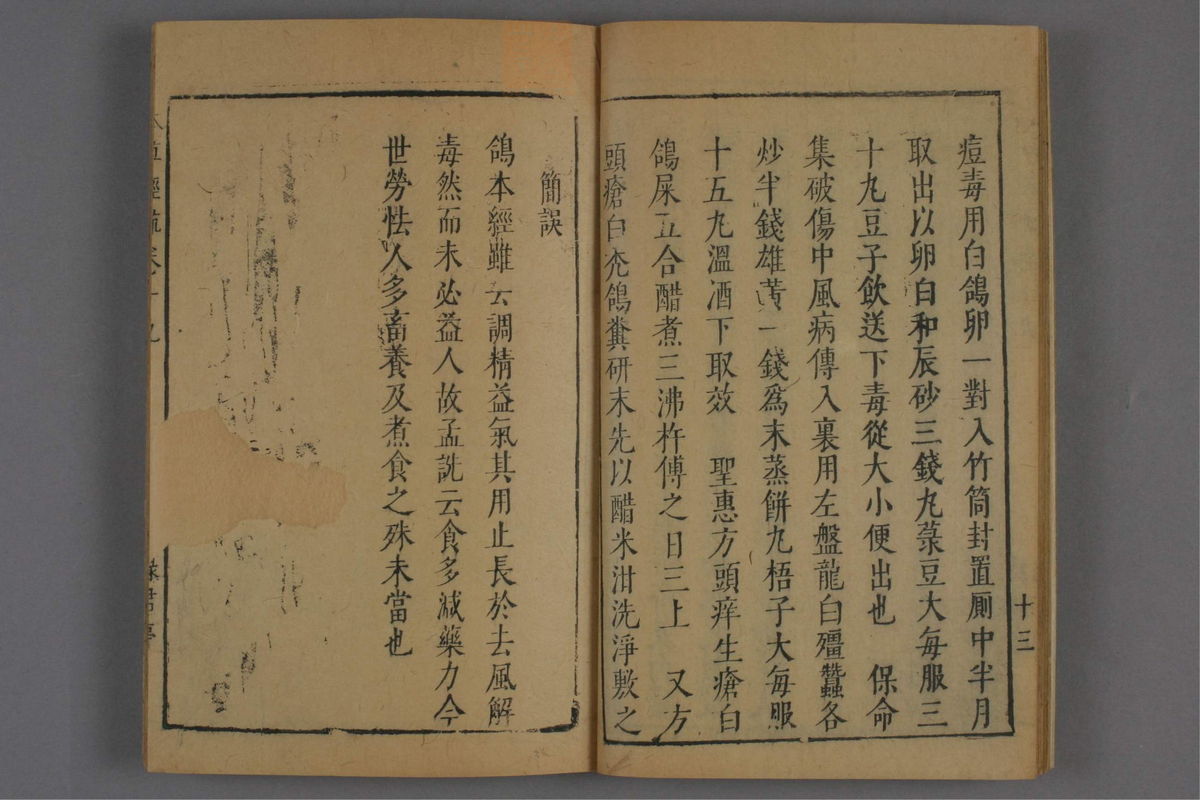 痘毒用白鴿卵一對入竹筒封置厠中半月
取出以卵白和辰砂三錢丸菉豆大每服三
十丸豆子飲送下毒從大小便出也　保命
集破傷中風病傳入裏用左盤龍白殭蠶各
炒半錢雄黃一錢爲末蒸餅丸梧子大每服
十五丸溫酒下取效　聖惠方頭痒生瘡白
鴿屎五合醋煮三沸杵傅之日三上　又方
頭瘡白禿鴿糞研末先以醋米泔洗淨敷之
十三
簡誤
鴿本經雖云調精益氣其用止長於去風解
毒然而未必益人故孟詵云食多減藥力今
世勞怯人多畜養及煮食之殊未當也